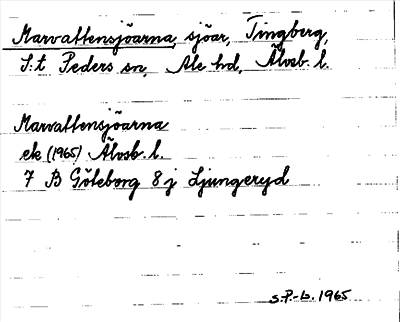 Marvattensjöarna, sjöar, Tingberg,
S:t Peders sn, Ale hd, Älvsb. l.
Marvattensjöarna
ek (1965) Älvsb. l.
7 B Göteborg 8 j Ljungeryd
s.P.-b. 1965